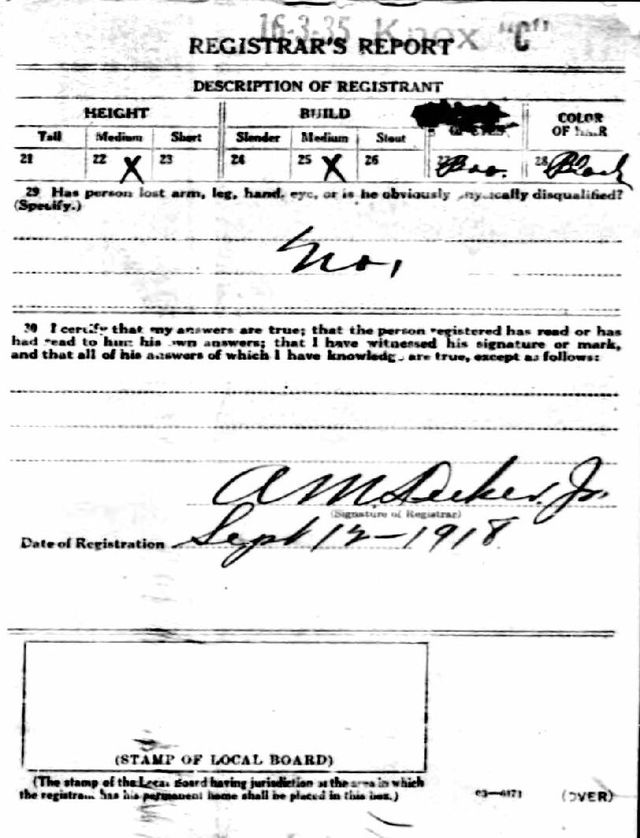 16-3-35 Knox "C"
REGISTRAR'S REPORT
DESCRIPTION OF REGISTRANT
HEIGHT BUILD COLOR OF HAIR
OF EYES
Tall Medium Short Slender Medium Stout
21 22 X 23 24 25 X 26 27 Bro. 28 Black
29 Has person lost arm, leg, hand, eye, or is he obviously physically disqualified?
(Specify.)
No.
30 I certify that my answers are true; that the person registered has read or has
had read to him his own answers; that I have witnessed his signature or mark,
and that all of his answers of which I have knowledge are true, except as follows:
A M Decker, Jr.
(Signature of Registrar)
Date of Registration Sept 12-1918
(STAMP OF LOCAL BOARD)
(The stamp of the Local Board having jurisdiction of the area in which
the registrant has his permanent home shall be placed in this box.)
03-6171 (OVER)